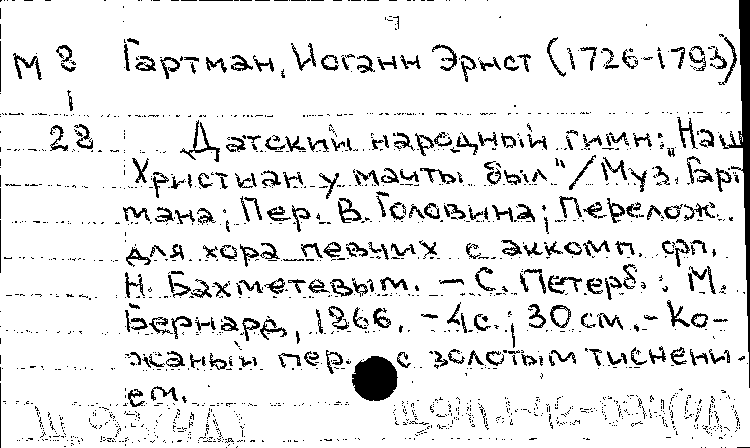 М 8 Гартман, Иоганн Эрнст (1726-1793)
1
28 Датский народный гимн: „Наш
Христиан у мачты был"/Муз. Гарт
мана; Пер. В. Головина; Перелож.
для хора певчих с аккомп. фп.
Н. Бахметевым. — С. Петерб.: М.
Бернард, 1866. - 4 с.; 30 см. - Ко-
жаный пер. с золотым тиснени-
ем.
Щ.93(4Д) Щ941.1-4к-094(4Д)